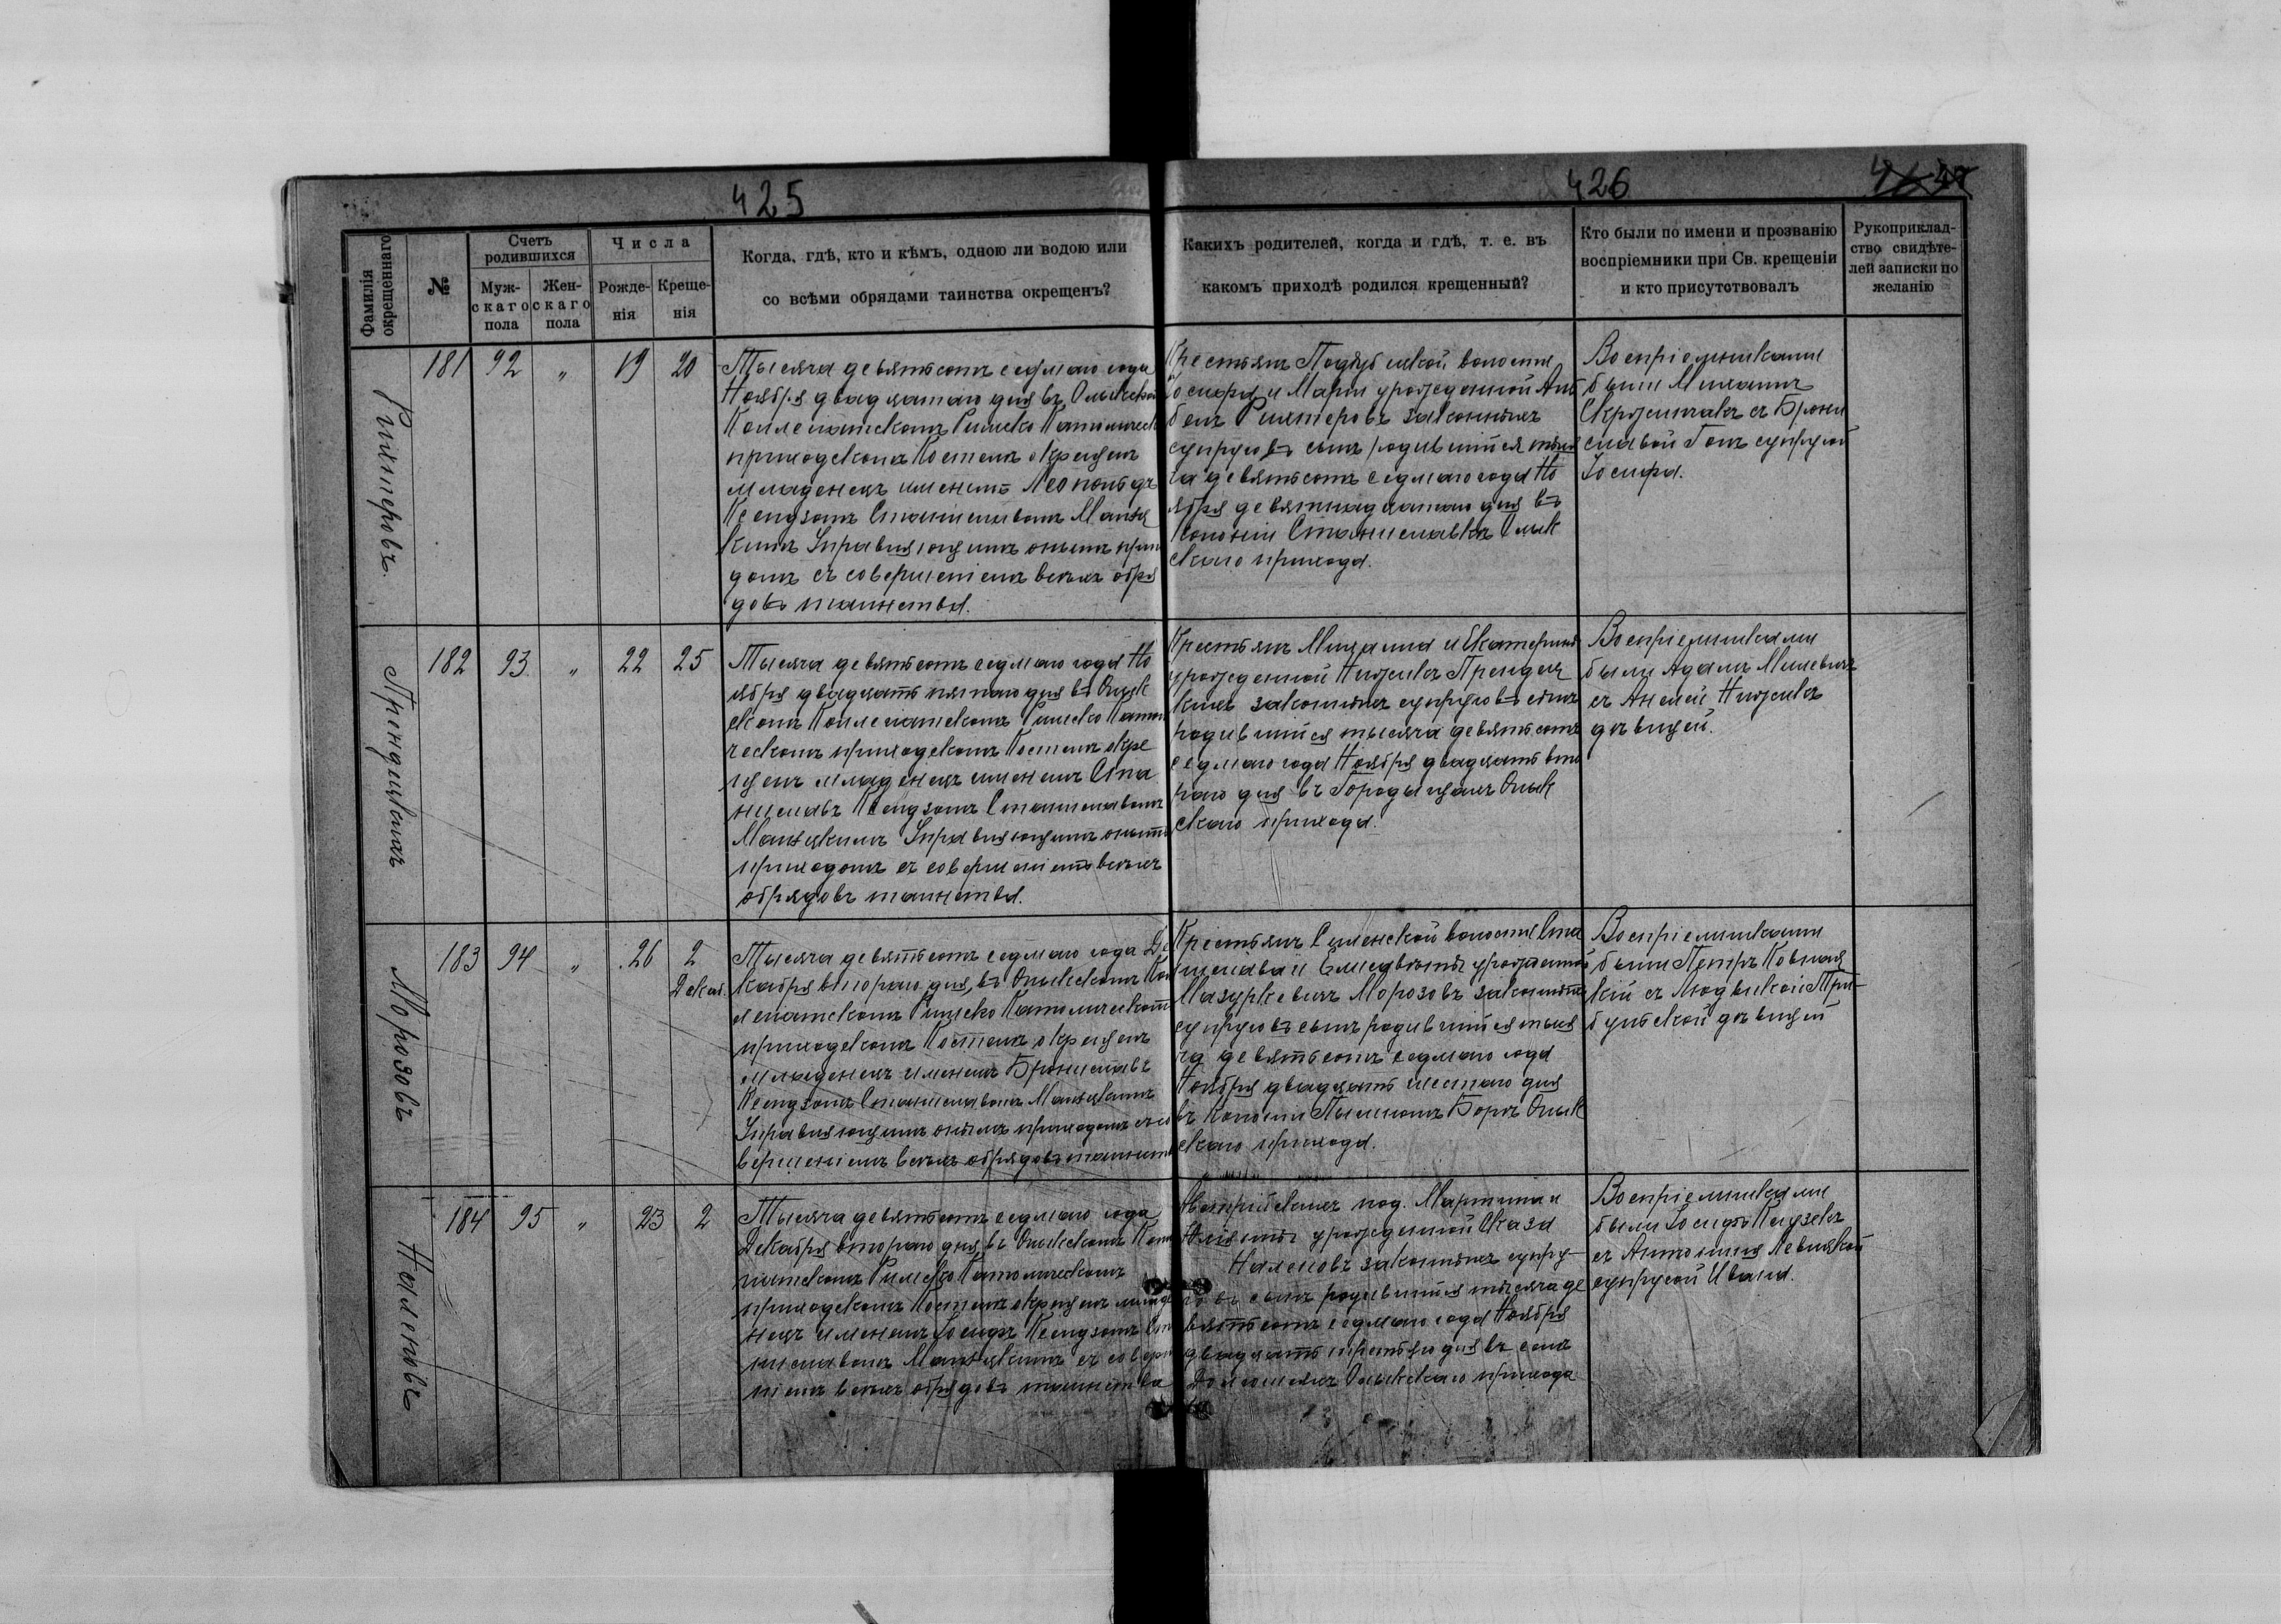 425
426
Фамилія окрещеннаго
№
Счетъ родившихся
Муж-
скаго
пола
Жен-
скаго
пола
Числа
Рожде-
нія
Креще-
нія
Когда, гдѣ, кто и кѣмъ, одною ли водою или
со всѣми обрядами таинства окрещенъ?
Какихъ родителей, когда и гдѣ, т. е. въ
какомъ приходѣ родился крещенный?
Кто были по имени и прозванію
воспріемники при Св. крещеніи
и кто присутствовалъ
Рукоприклад-
ство свидѣте-
лей записки по
желанію
Рихтеровъ.
181 92 „ 19 20
Тысяча девятьсотъ седьмаго года
Ноября двадцатаго дня въ Олыкском
Коллегіатскомъ Римско Католическ
приходскомъ Костелѣ окрещенъ
младенецъ именемъ Леопольдъ
Ксендзомъ Станиславомъ
Управляющимъ онымъ прихо
домъ съ совершеніемъ всѣхъ обря
довъ таинства.
Крестьянъ волости
Іосифа и Маріи урожденной
Рихтеровъ законныхъ
супруговъ сынъ родившійся тыся
ча девятьсотъ седьмаго года Но
ября девятнадцатаго дня въ
Колоніи Станиславкѣ Олык
скаго прихода.
Воспріемниками
были Михаилъ
съ Брони
славой супругой
Іосифа.
182 93 „ 22 25
Тысяча девятьсотъ седьмаго года Но
ября двадцать пятаго дня въ Олык
скомъ Коллегіатскомъ Римско Катол
ческомъ приходскомъ Костелѣ окре
щенъ младенецъ именемъ Ста
ниславъ Ксендзомъ Станиславомъ
Управляющимъ онымъ
приходомъ съ совершеніемъ всѣхъ
обрядовъ таинства.
Крестьянъ Михаила и Екатерины
урожденной
законныхъ супруговъ сынъ
родившійся тысяча девятьсотъ
седьмаго года Ноября двадцать вто
раго дня въ Городищахъ Олык
скаго прихода.
Воспріемниками
были Адамъ
съ Анелей
дѣвицей.
Морозовъ
183 94 „ 26 2
Декаб.
Тысяча девятьсотъ седьмаго года Де
кабря втораго дня въ Олыкскомъ Кол
легіатскомъ Римско Католическомъ
приходскомъ Костелѣ окрещенъ
младенецъ именемъ Брониславъ
Ксендзомъ Станиславомъ
Управляющимъ онымъ приходомъ съ со
вершеніемъ всѣхъ обрядовъ таинств
Крестьянъ волости Ста
нислава и Елисаветы урожденной
Мазуркевичъ Морозовъ законныхъ
супруговъ сынъ родившійся тыся
ча девятьсотъ седьмаго года
Ноября двадцать шестаго дня
въ Колоніи Борѣ Олык
скаго прихода.
Воспріемниками
были Петръ Ковнац
кій съ Людвикой
дѣвицей
184 95 „ 23 2
Тысяча девятьсотъ седьмаго года
Декабря втораго дня въ Олыкскомъ Колле
гіатскомъ Римско Католическомъ
приходскомъ Костелѣ окрещенъ младе
нецъ именемъ Іосифъ Ксендзомъ Ста
ниславомъ съ соверше
ніемъ всѣхъ обрядовъ таинства
Австрійскихъ под. Мартина и
урожденной
законныхъ супру-
говъ сынъ родившійся тысяча де
вятьсотъ седьмаго года Ноября
двадцать третьяго дня въ селѣ
Олыкскаго прихода
Воспріемниками
были Іосифъ
съ Антониной Левицкой
супругой Ивана.